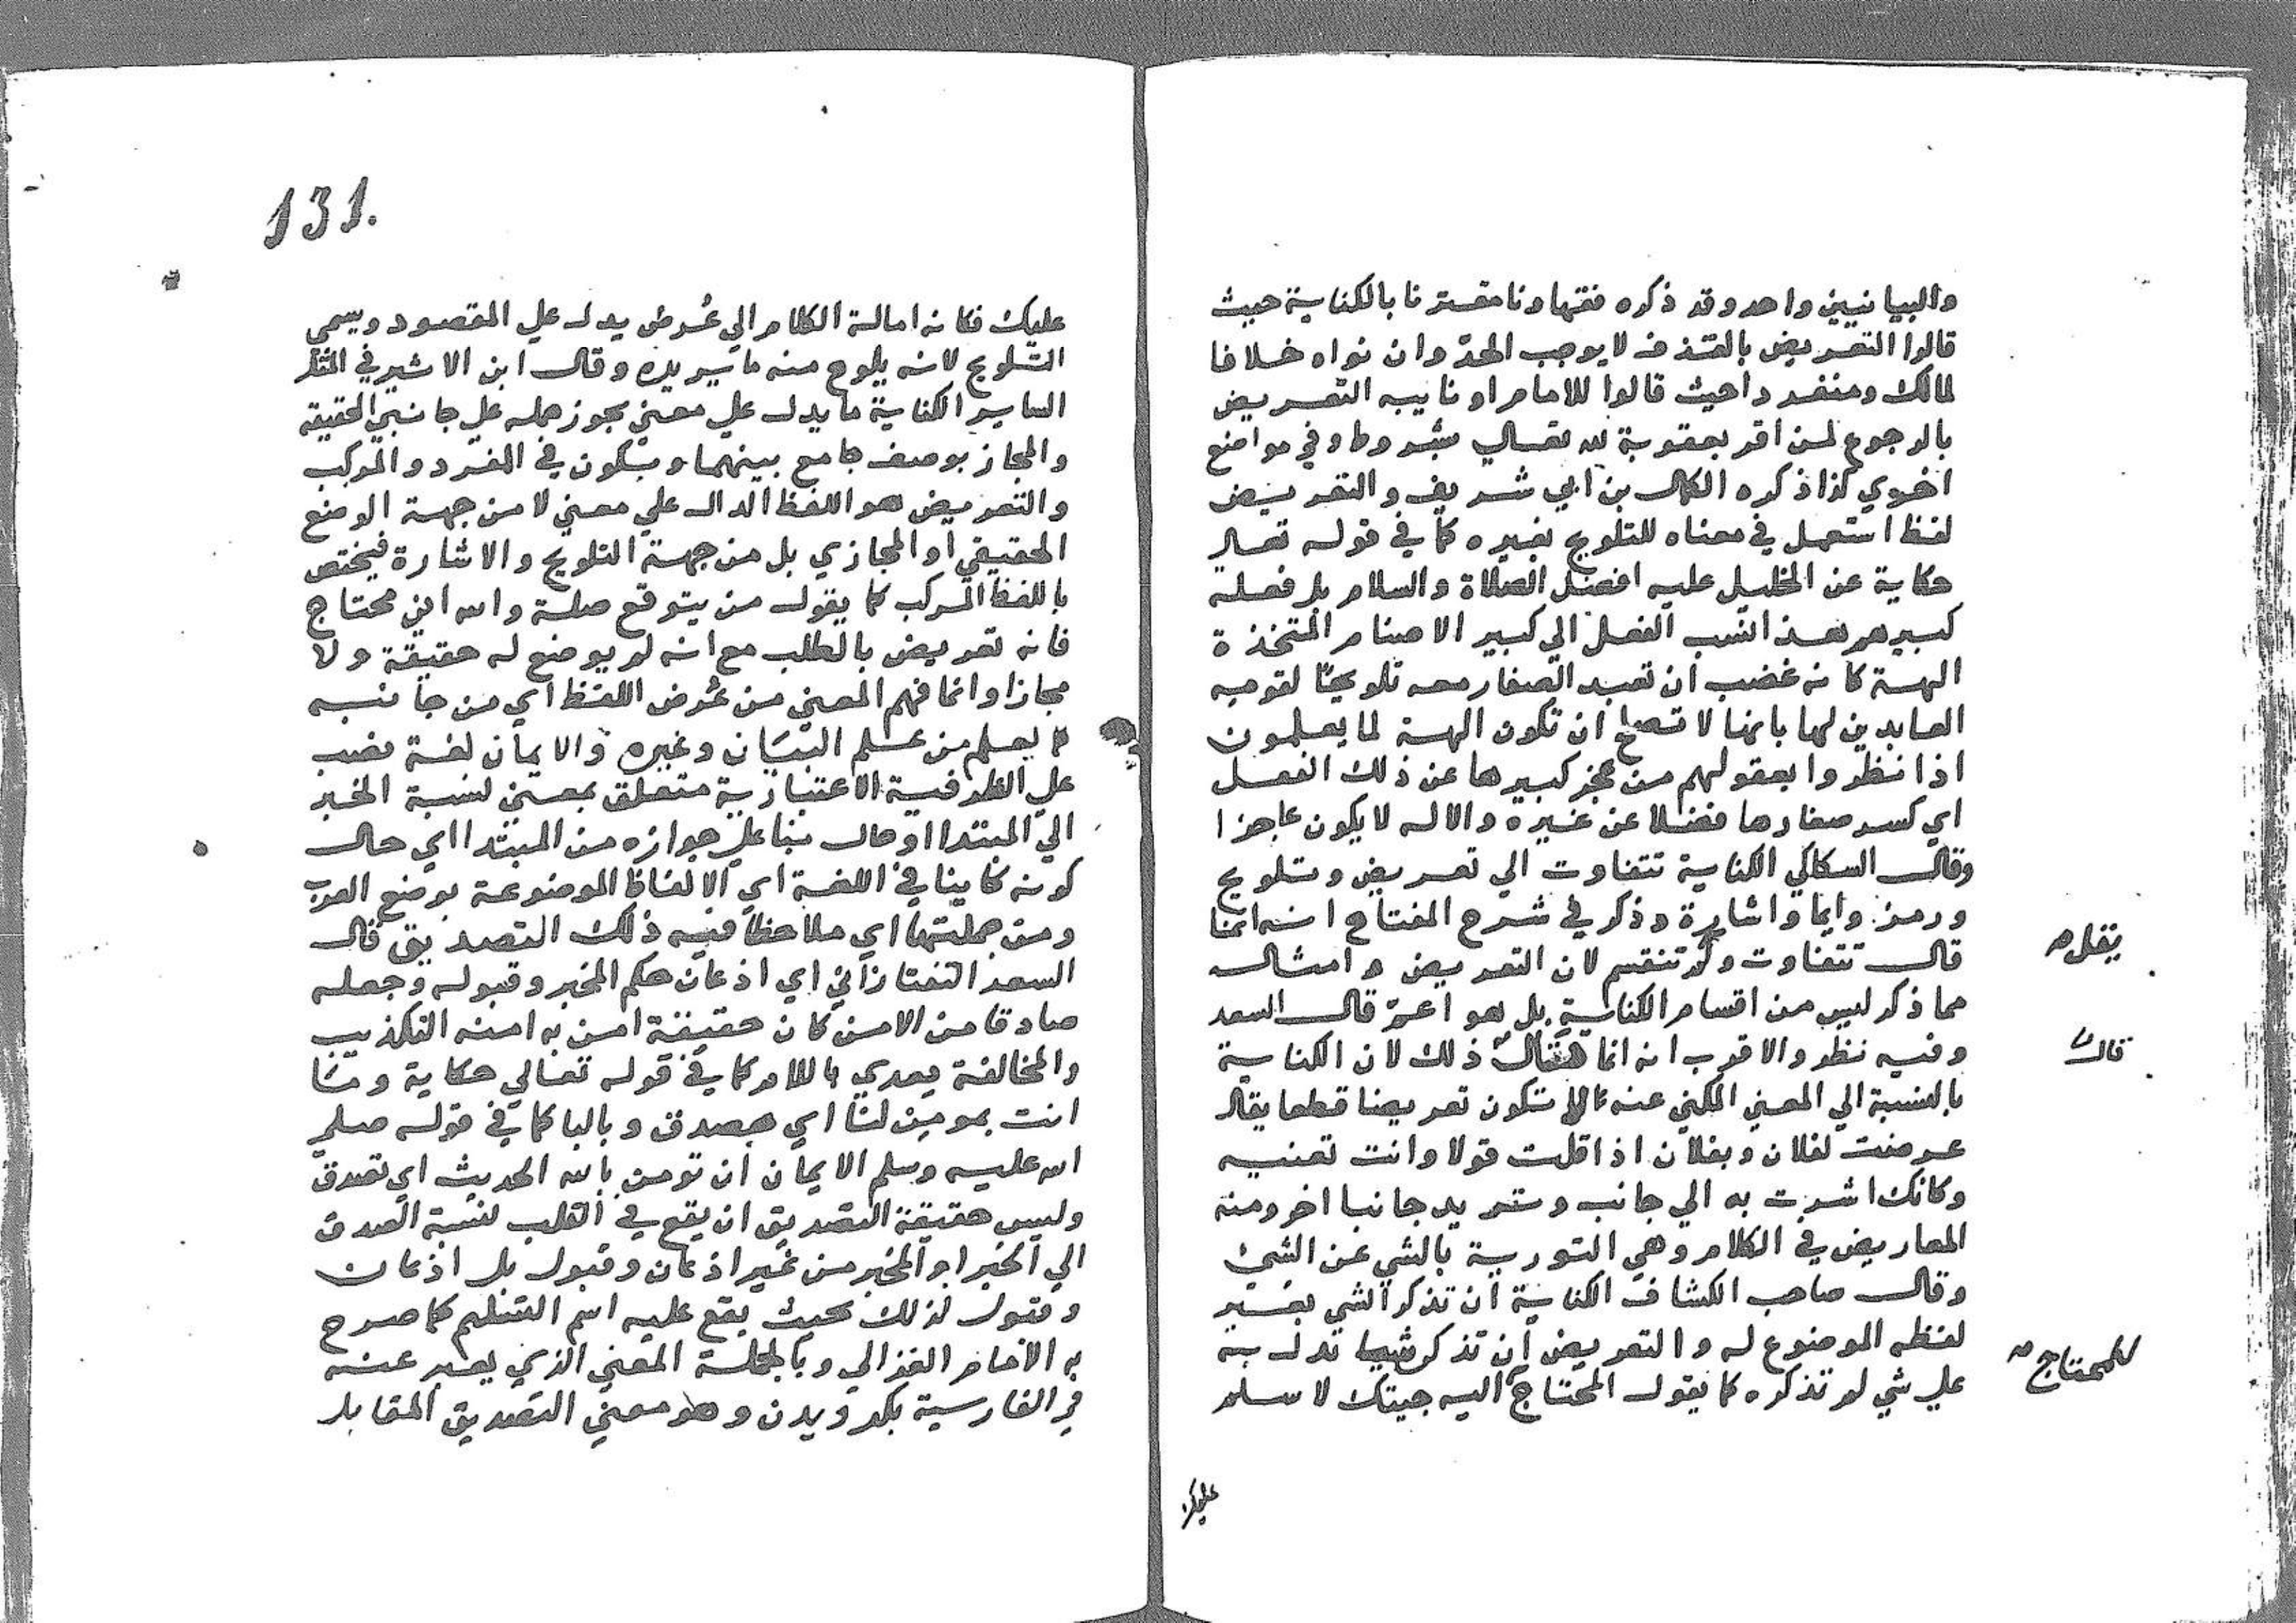 والبيانيين واحد وقد ذكره فقهاونا مقترنا بالكناية حيث
قالوا التعريض بالقذف لا يوجب الحدّ وان نواه خلافا
لمالك ومنفردا حيث قالوا للامام او نايبه التعريض
بالرجوع لمن اقر بعقوبة لله تعالي بشروط وفي مواضع
اخري كذا ذكره الكمال بن ابي شريف والتعريض
لفظ استعمل في معناه للتلويح بغيره كما في قوله تعالي
حكاية عن الخليل عليه افضل الصلاة والسلام بل فعله
كبيرهم هذا نسب الفعل الي كبير الاصنام المتخذة
الهة كانه غضب ان تعبد الصغار معه تلويحًا لقومه
العابدين لها بانها لا تصلح ان تكون الهة لما يعلمون
اذا نظروا بعقولهم من عجز كبيرها عن ذلك الفعل
اي كسر صغارها فضلا عن غيره والاله لا يكون عاجزا
وقال السكاكي الكناية تتفاوت الي تعريض وتلويح
ورمز وايما واشارة وذكر في شرح المفتاح انه انما
قال تتفاوت ولم تنقسم لان التعريض وامثاله
يقل
مما ذكر ليس من اقسام الكناية بل هو اعمّ قال السعد
وفيه نظر والاقرب انه انما قال ذلك لان الكناية
قال
بالنسبة الي المعني المكني عنه لا تكون تعريضا قطعا يقال
عرضت لفلان وبفلان اذا قلت قولا وانت تعنيه
وكانك اشرت به الي جانب وتريد جانبا اخر ومنه
المعاريض في الكلام وهي التورية بالشي عن الشي
وقال صاحب الكشاف الكناية ان تذكر الشي بغير
لفظه الموضوع له والتعريض ان تذكر شيا تدل به
علي شي لم تذكره كما يقول المحتاج اليه جيتك لاسلم
للمحتاج
عليك
131.
عليك فكانه امالة الكلام الي عُرض يدل علي المقصود ويسمي
التلويح لانه يلوح منه ما يريده وقال ابن الاثير في المثل
الساير الكناية ما يدل علي معني يجوز حمله علي جانبي الحقيقة
والمجاز بوصف جامع بينهما وتكون في المفرد والمركب
والتعريض هو اللفظ الدال علي معني لا من جهة الوضع
الحقيقي او المجازي بل من جهة التلويح والاشارة فيختص
باللفظ المركب كما يقول من يتوقع صلة والله اني محتاج
فانه تعريض بالطلب مع انه لم يوضع له حقيقة ولا
مجازا وانما فهم المعني من عُرض اللفظ اي من جانبه
كما يعلم من علم البيان وغيره والايمان لغة نصب
علي الظرفية الاعتبارية متعلق بمعني نسبة الخبر
الي المبتدا او حال بنا علي جوازه من المبتدا اي حال
كونه كاينا في اللغة اي الالفاظ الموضوعة بوضع العرب
ومن جملتها اي ملاحظا فيه ذلك التصديق قال
السعد التفتازاني اي اذعان حكم المخبر وقبوله وجعله
صادقا من الامن كان حقيقة امن به امنه التكذيب
والمخالفة يعدي باللام كما في قوله تعالي حكاية وما
انت بمومن لنا اي بمصدق وبالبا كما في قوله صلي
الله عليه وسلم الايمان ان تومن بالله الحديث اي تصدق
وليس حقيقة التصديق ان يقع في القلب نسبة الصدق
الي الخبر او المخبر من غير اذعان وقبول بل اذعان
وقبول لذلك بحيث يقع عليه اسم التسليم كما صرح
به الامام الغزالي وبالجملة المعني الذي يعبر عنه
في الفارسية بكرويدن وهو معني التصديق المقابل